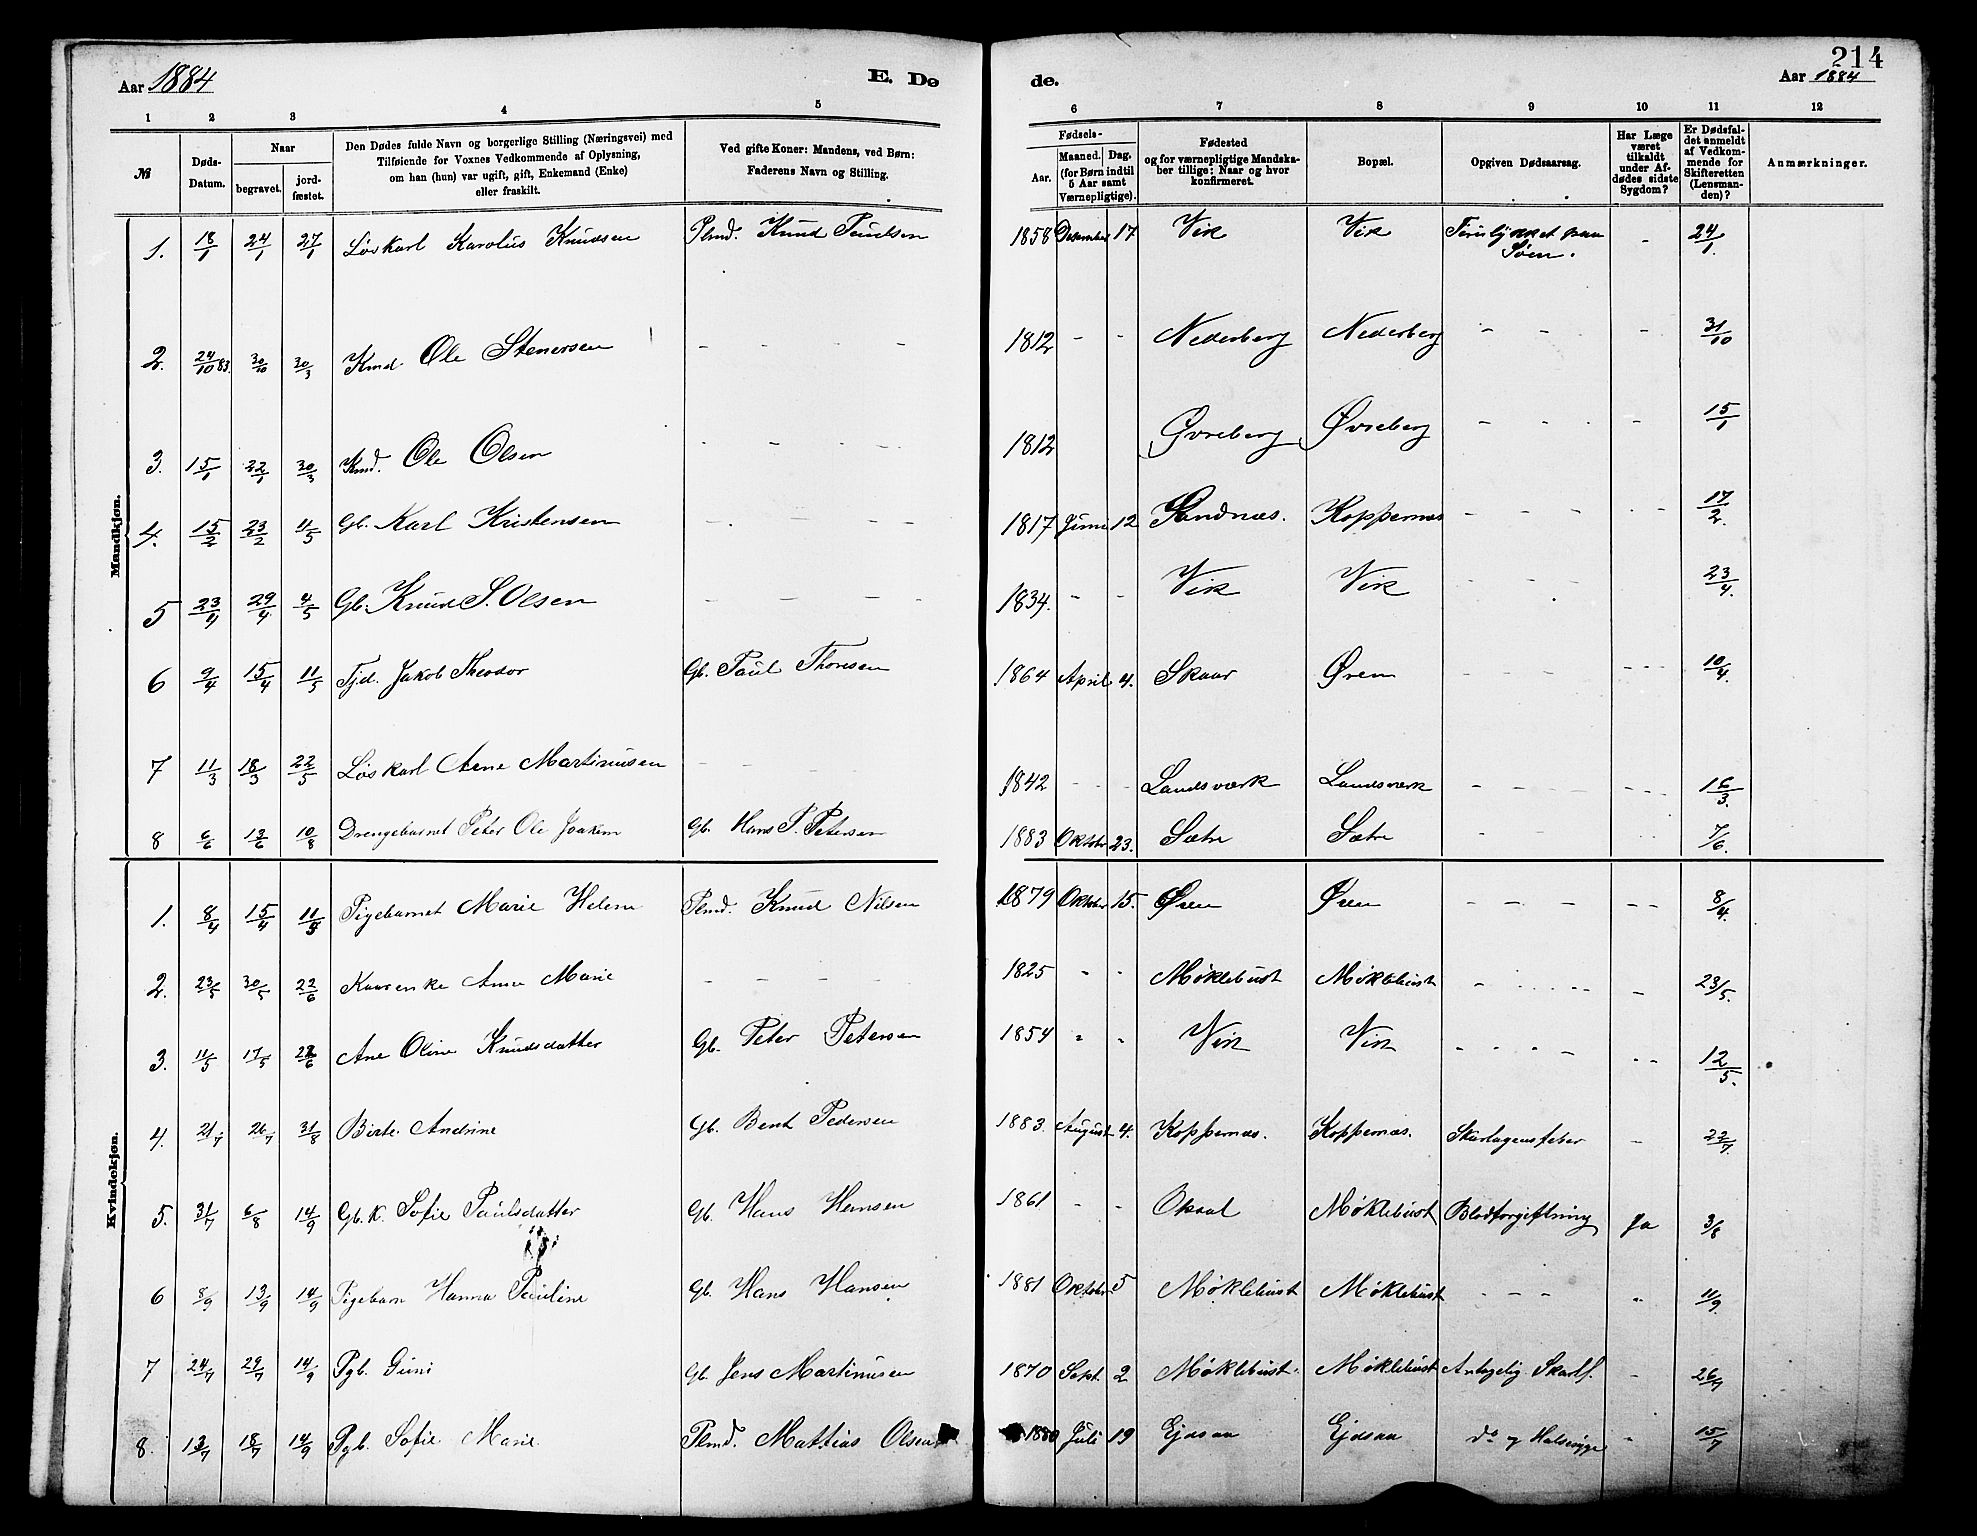 Aar 1884
E. Dø
de.
214
Aar 1884
1 2 3 4 5 6 7 8 9 10 11 12
№
Døds-
Datum.
Naar
begravet.
jord-
fæstet.
Den Dødes fulde Navn og borgerlige Stilling (Næringsvei) med
Tilføiende for Voxnes Vedkommende af Oplysning,
om han (hun) var ugift, gift, Enkemand (Enke)
eller fraskilt.
Ved gifte Koner: Mandens, ved Børn:
Faderens Navn og Stilling.
Fødsels-
Aar.
Maaned. Dag.
(for Børn indtil
5 Aar samt
Værnepligtige).
Fødested
og for værnepligtige Mandska-
ber tillige: Naar og hvor
konfirmeret.
Bopæl.
Opgiven Dødsaarsag.
Har Læge
været
tilkaldt
under Af-
dødes sidste
Sygdom?
Er Dødsfal-
det anmeldt
af Vedkom-
mende for
Skifteretten
(Lensman-
den)?
Anmærkninger.
Mandkjøn.
1. 18/1 24/1 27/1 Løskarl Karolus Knudsen Plmd. Knud Paulsen 1858 December 17 Vik Vik Forulykket paa - 24/1.
Søen.
2. 24/10 83. 30/10 30/3 Kmd. Ole Stenersen - - - - 1812 - - Nederberg Nederberg - - - - 31/10
3. 15/1 22/1 30/3 Kmd. Ole Olsen - - - - 1812 Øvreberg Øvreberg - - - - 15/1
4. 15/2 23/2 11/5 Gb. Karl Kristensen - - - - 1817 Juni 12 Sandnæs. Koppernæs - - - - - 17/2.
5 23/4 29/4 4/5 Gb. Knud S. Olsen - - - - - 1834. - - Vik Vik - - - 23/4.
6 9/4 15/4 11/5 Tjd. Jakob Theodor Gb. Paul Thoresen 1864 April 4. Skaar Øren - - - - - - - 10/4.
7 11/3 18/3 22/5 Løskarl Arne Martinusen - - - - 1842 - - - Landsværk Landsværk - - - - - - 16/3.
8 6/6 13/6 10/8 Drengebarnet Peter Ole Joakim Gb. Hans P. Petersen 1883 Oktober 23. Sætre Sætre - - - - - 7/6.
Kvindekjøn.
1. 8/4 15/4 11/5 Pigebarnet Marie Helene Plmd. Knud Nilsen 1879 Oktober 15. Øren Øren - - - - - - 8/4.
2. 23/5 30/5 22/6 Kaarenke Anne Marie - - - 1825 - - Møklebust Møklebust - - - - - - 23/5.
3. 11/5 17/5 22/6 Ane Oline Knudsdatter Gb. Peter Petersen 1854 " " Vik Vik - - - - - - 12/5.
4. 21/7 26/7 31/8 Birte Andrine Gb. Bent Pedersen 1883. August 4. Koppernæs. Koppernæs. Skarlagensfeber - 22/7.
5. 31/7 6/8 14/9 Gb. K. Sofie Paulsdatter Gb. Hans Hansen 1861 - - Oksal Møklebust Blodforgiftning ja 3/8
6 8/9 13/9 14/9 Pigebarn Hanna Pauline Gb. Hans Hansen 1881 Oktober 5 Møklebust Møklebust - - - " 11/9.
7 24/7 29/7 14/9 Pgb. Guni Gb. Jens Martinusen 1870 Sept. 2 Møklebust. Møklebust Antagelig Skarlf. - 26/7
8. 13/7 18/7 14/9 Pgb. Sofie Marie Plmd. Mattias Olsen 1880 Juli 19 Ejdsaa Ejdsaa do og Halssyge - 15/7